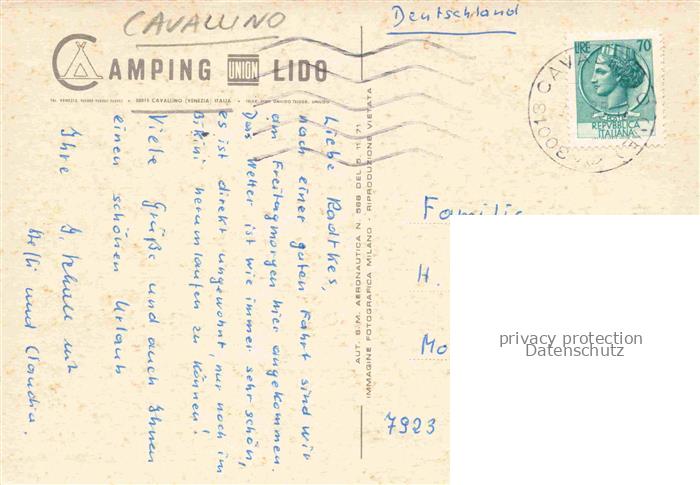 CAVALLINO
Deutschland
CAMPING UNION LIDO
30013 CAVALLINO (VENEZIA) ITALIA
LIRE 70
REPVBBLICA
ITALIANA
30013 CAVA
Liebe Radtkes,
nach einer guten Fahrt sind wir
am Freitagmorgen hier angekommen.
Das Wetter ist wie immer sehr schön,
es ist direkt ungewohnt, nur noch im
Bikini herumlaufen zu können!
Viele Grüße und auch Ihnen
einen schönen Urlaub
Ihre
mit
und Claudia.
AUT. S.M. AERONAUTICA N. 568 DEL 5.11.71
IMMAGINE FOTOGRAFICA MILANO - RIPRODUZIONE VIETATA
Familie
H.
Mo
7923
privacy protection
Datenschutz